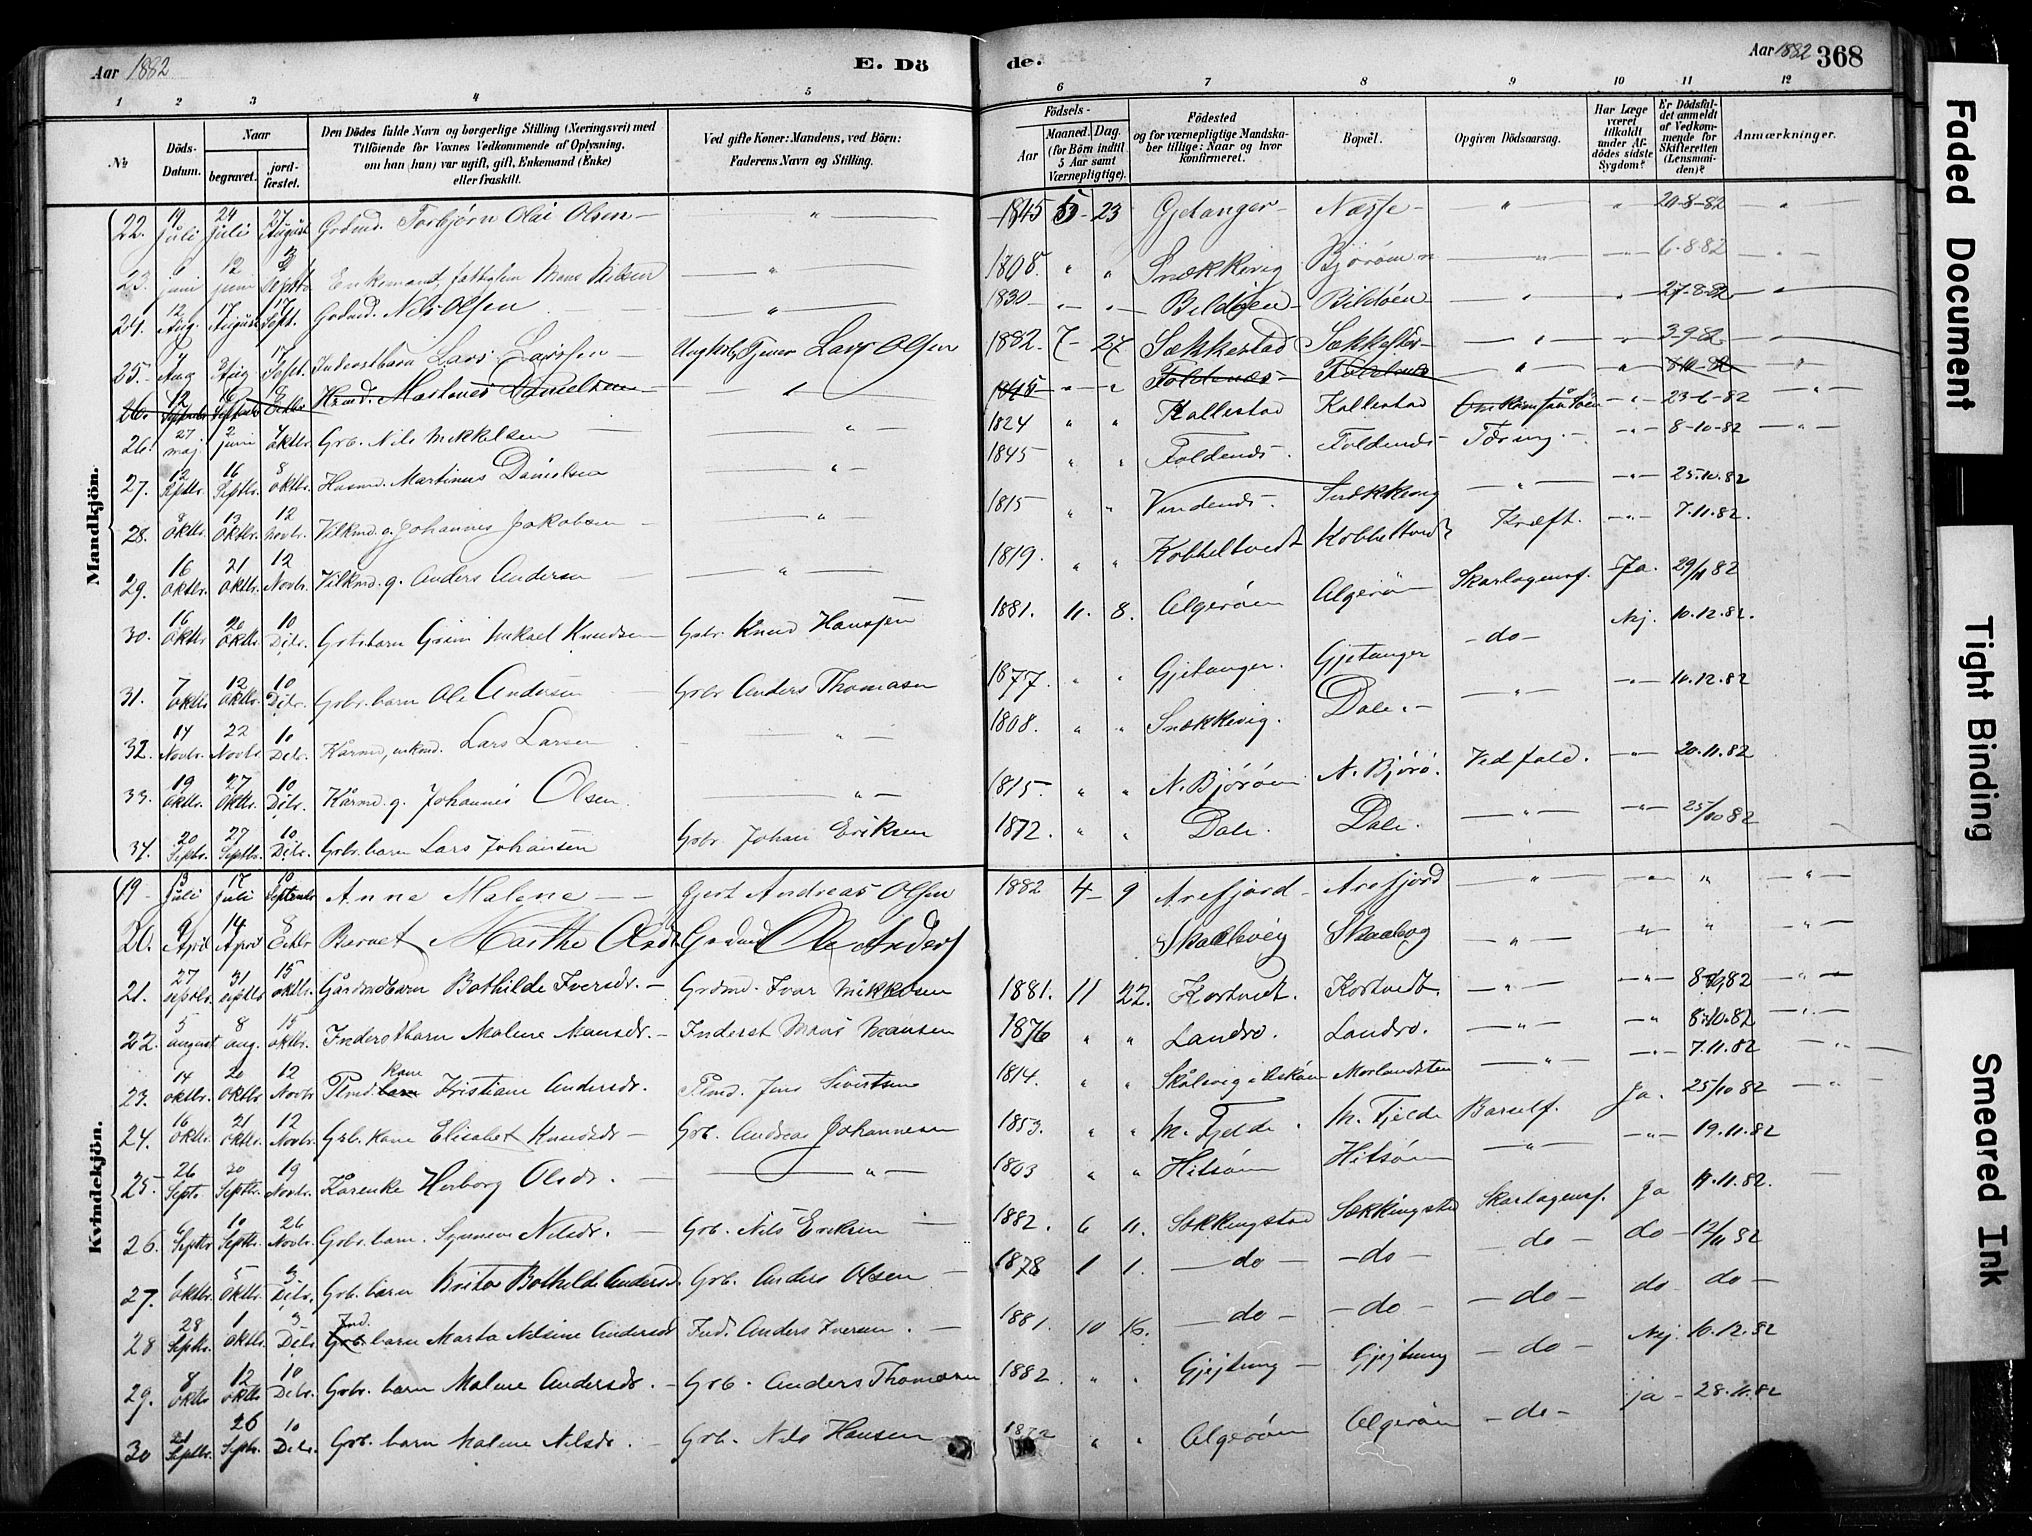 Aar 1882 E. Dö de. Aar 1882 368
1 2 3 4 5 6 7 8 9 10 11 12
№ Döds-Datum. Naar begravet. jordfæstet. Den Dödes fulde Navn og borgerlige Stilling (Næringsvei) med Tilföiende for Voxnes Vedkommende af Oplysning, om han (hun) var ugift, gift, Enkemand (Enke) eller fraskilt. Ved gifte Koner: Mandens, ved Börn: Faderens Navn og Stilling. Födsels- Aar Maaned. Dag. (for Börn indtil 5 Aar samt Værnepligtige). Födested og for værnepligtige Mandskaber tillige: Naar og hvor konfirmeret. Bopæl. Opgiven Dödsaarsag. Har Læge været tilkaldt under Afdödes sidste Sygdom? Er Dödsfaldet anmeldt af Vedkommende for Skifteretten (Lensmanden)? Anmærkninger.
Mandkjön.
22. 19 Juli 24 Juli 27 August Grdmd. Torbjørn Olai Olsen — " — 1845 5 - 23 Gjetanger - Næsse - " " 20-8-82 "
23. 6 juni 12 juni 3 Septbr Enkemand, Mons Nilsen — " — 1808. " " Snækkevig Bjøröen " " 6-8-82 "
24. 12 Aug. 17 August 17 Sept. Grdmd. Nils Olsen — " — 1830 - - " Bildöen - Bildöen - " " 27-8-82 "
25. - 4 Aug 9 Aug 17 Sept. Inderstbarn Lars Larsen - Ungkarl, Tjener Lars Olsen 1882. 7 - 24 Sækkestad " " 3-9-82 "
26. 12 Septbr 16 Septbr 8 Octbr Hmd. Martinus Danielsen — " 1845 " " Foldenæs - Foldenæs " " 8-10-82 "
26. 27 maj 2 juni oktbr. Grb. Nils Mikkelsen — " — 1824 " " Kallestad Kallestad - " - 23-6-82 "
27. 12 Septbr. 16 Septbr. 8 oktbr. Husmd. Martinus Danielsen — " — 1845 " " Foldenæs - Foldenæs - Tæring. - " - 8-10-82 — " —
28. 8 Oktbr. 13 Oktbr. 12 Novbr. Vilkmd. g. Johannes Jakobsen — " — 1815 " " Vindenæs - Snækkevig — " — - " - 25.10.82
29. 16 oktbr. 21 oktbr. 12 Novbr. Vilkmd. g. Anders Andersen — " — 1819. " " Kobbeltvedt Kobbeltvedt Kræft. - " - 7.11.82.
30. 16 Oktbr. 20 Oktbr. 10 Dcbr. Grbr. barn Grim Mikael Knudsen Grbr. Knud Hanssen 1881. 11. 8. Algeröen Algeröen Skarlagensf. Ja. 29/11 82
31. 7 oktbr 12 oktbr. 10 Dcbr. Grbr. barn Ole Andersen — Grbr Anders Thomasen 1877. " " Gjetanger. Gjetanger - do - Nej. 10.12.82.
32. 14 Novbr. 22 Novbr 10 Dcbr. Kårmd, enkmd. Lars Larsen — " — 1808. " " Snækkevig. Dale. - — " — - " - 10.12.82
33. 19 Oktbr. 27 Oktbr. 10 Dcbr. Kårmd. g. Johannes Olsen. — " — 1815. " " N. Björöen N. Björö. Ved fald. - " - 20.11.82
34. 20 Septbr. 27 Septbr. 10 Dcbr. Grbr. barn Lars Johansen Grbr Johan Eriksen 1872. " " Dale. Dale. — " — - " - 25/10 82
Kvindekjön.
19 - 13 Juli 17 Juli 10 Septembr Anne Malene — — Gjert Andreas Olsen 1882 4 - 9 Arefjord - Arefjord — " — - " - " - " -
20. 9 April 14 April 8 Octbr Barnet Marthe Olsdt Grdmd Ole Anders Skaalevig Skaalevig — " — " " "
21. 27 septbr. 31 septbr 15 oktbr. Gårdmdbarn Bothilde Iversdr. - Grdmd. Ivar Mikkelsen 1881. 11 22. Kortvedt. Kortvedt. — " — - " - 8.10.82 - " -
22. 5 august 8 aug. 15 oktbr. Inderstbarn Malene Monsdr. - Inderst Mons Monsen 1876 " " Landro. Landro. — " — - " 8.10.82 - " -
23. 14 oktbr. 20 oktbr. 12 Novbr Plmd. barn Kone Kristiane Andersdr. Plmd. Jens Sivertsen 1814. " " Skålevig i Askön Morlandstøen — " — - " - 7.11.82 - " -
24. 16 oktbr. 21 oktbr. 12 Novbr. Grb. kone Elisabet Knudsdr - Grb. Andreas Johannesen 1853. " " M. Fjelde. M. Fjelde Barself. Ja. 25/10 82 - " -
25. 26 Septr 30 Septbr. 19 Novbr. Kårenke Herborg Olsdr. — " — 1803 " " Hitsöen Hitsöen — " — - " - 19.11.82
26. 6 Septbr 10 Septbr. 26 Novbr. Grbr. barn. Synneve Nilsdr. - Grb. Nils Eriksen - 1882. 6 11. Sækkingstad Sækkingstad Skarlagensf. Ja 11.11.82.
27. 1 oktbr. 5 oktbr. 3 Dcbr. Grb. barn Brita Bothilde Andersd. Grb. Anders Olsen - 1878 1 1. — do — — do — — do — do - 12/11 82
28 28 Septbr. 1 oktbr. 3 Dcbr. Grb. Ind. barn Marta Nilsine Andersdr Ind. Anders Iversen. - 1881. 10 16. — do — — do — — do — do do —
29. 8 oktbr 12 oktbr 10 Dcbr. Grbr. barn Malene Andersdr. - Grb. Anders Thomasen 1882. " " Gjejtung - Gjejtung — do — Nej. 10.12.82
30 21 Septbr. 26 Septbr. 10 Dcbr. Grb. barn Malene Nilsdr. - Grb. Nils Hansen 1872 " " Algeröen Algeröen — do — ja - 28.11.82
Faded Document
Tight Binding
Smeared Ink